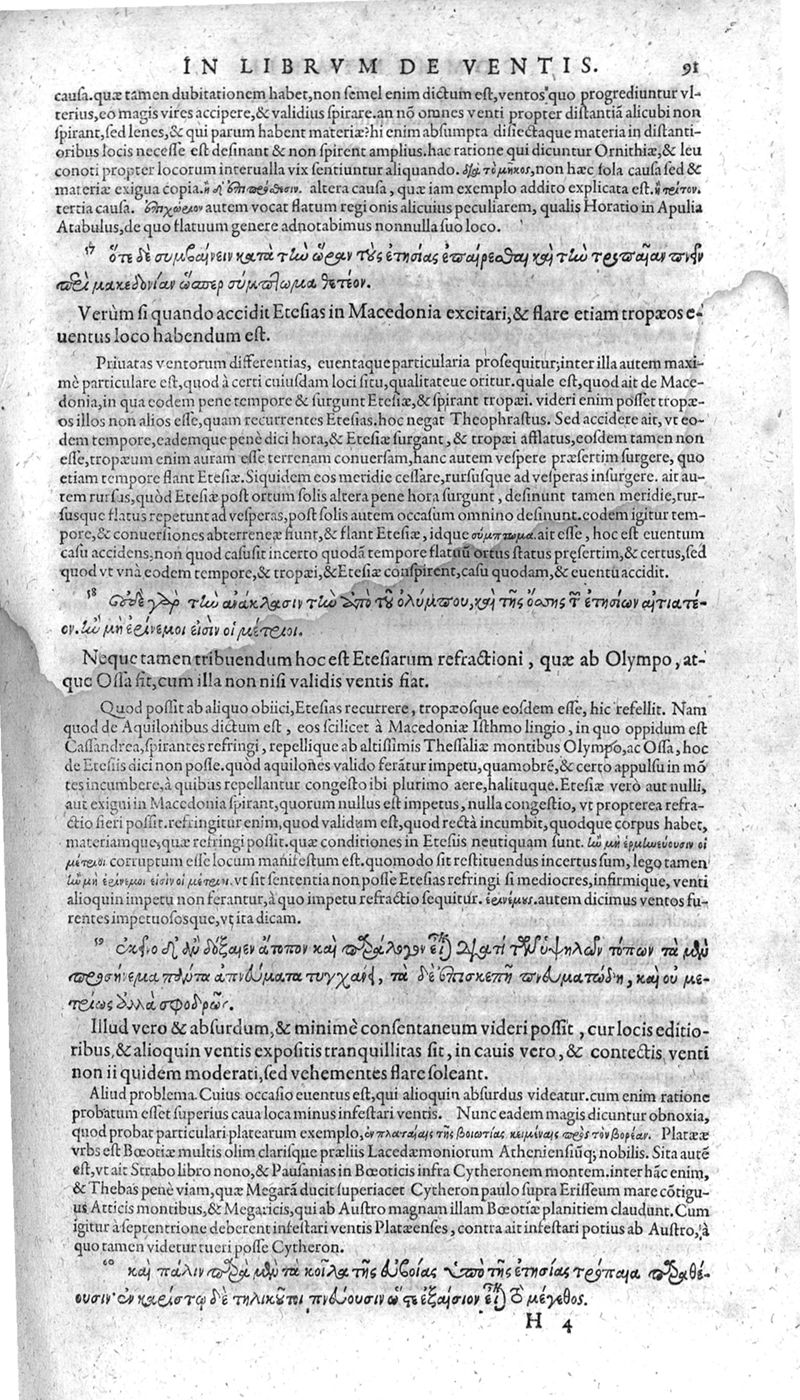 IN LIBRVM DE VENTIS. 91
causa.quæ tamen dubitationem habet,non semel enim dictum est,ventos quo progrediuntur vl-
terius,eo magis vires accipere,& validius spirare.an nõ omnes venti propter distantiã alicubi non
spirant,sed lenes,& qui parum habent materiæ?hi enim absumpta disiectaque materia in distanti-
oribus locis necesse est desinant & non spirent amplius.hac ratione qui dicuntur Ornithiæ,& leu
conoti propter locorum interualla vix sentiuntur aliquando. διὰ τὸ μῆκος,non hæc sola causa sed &
materiæ exigua copia. altera causa, quæ iam exemplo addito explicata est. ἢ τρίτον.
tertia causa. ἐπιχώριον autem vocat flatum regionis alicuius peculiarem, qualis Horatio in Apulia
Atabulus,de quo flatuum genere adnotabimus nonnulla suo loco.
17 ὅτε δὲ συμβαίνειν κατὰ τὴν ὥραν τοὺς ἐτησίας ἐπαίρεσθαι καὶ τὴν τροπαίαν πνεῖν
περὶ μακεδονίαν ὥσπερ σύμπτωμα θετέον.
Verùm si quando accidit Etesias in Macedonia excitari,& flare etiam tropæos e-
uentus loco habendum est.
Priuatas ventorum differentias, euentaque particularia prosequitur;inter illa autem maxi-
mè particulare est,quod à certi cuiusdam loci situ,qualitateue oritur.quale est,quod ait de Mace-
donia,in qua eodem pene tempore & surgunt Etesiæ,& spirant tropæi. videri enim posset tropæ-
os illos non alios esse,quam recurrentes Etesias.hoc negat Theophrastus. Sed accidere ait, vt eo-
dem tempore,eademque penè dici hora,& Etesiæ surgant,& tropæi afflatus,eosdem tamen non
esse,tropæum enim auram esse terrenam conuersam,hanc autem vespere præsertim surgere, quo
etiam tempore flant Etesiæ.Siquidem eos meridie cessare,rursusque ad vesperas insurgere. ait au-
tem rursus,quòd Etesiæ post ortum solis altera pene hora surgunt, desinunt tamen meridie,rur-
susque flatus repetunt ad vesperas,post solis autem occasum omnino desinunt.eodem igitur tem-
pore,& conuersiones abterreneæ fiunt,& flant Etesiæ, idque σύμπτωμα.ait esse, hoc est euentum
casu accidens,non quod casu sit incerto quodã tempore flatuũ ortus status pręsertim,& certus,sed
quod vt vnà eodem tempore,& tropæi,&Etesiæ conspirent,casu quodam,& euentu accidit.
18 Οὐδὲ γὰρ τὴν ἀνάκλασιν τὴν ἀπὸ τοῦ ὀλύμπου,καὶ τῆς ὄσσης τῶν ἐτησίων αἰτιατέ-
ον. ἢν μὴ ἐρίνεμοι εἰσὶν οἱ μέτριοι.
Neque tamen tribuendum hoc est Etesiarum refractioni, quæ ab Olympo, at-
que Ossa fit,cum illa non nisi validis ventis fiat.
Quod possit ab aliquo obiici,Etesias recurrere, tropæosque eosdem esse, hic refellit. Nam
quod de Aquilonibus dictum est, eos scilicet à Macedoniæ Isthmo lingio, in quo oppidum est
Cassandrea,spirantes refringi, repellique ab altissimis Thessaliæ montibus Olympo,ac Ossa, hoc
de Etesiis dici non posse.quòd aquilones valido ferãtur impetu,quamobrẽ,& certo appulsu in mõ
tes incumbere,à quibus repellantur congesto ibi plurimo aere,halituque.Etesiæ verò aut nulli,
aut exigui in Macedonia spirant,quorum nullus est impetus, nulla congestio, vt propterea refra-
ctio fieri possit.refringitur enim,quod validum est,quod rectà incumbit,quodque corpus habet,
materiamque,quæ refringi possit.quæ conditiones in Etesiis neutiquam sunt. οἱ
μέτριοι corruptum esse locum manifestum est.quomodo sit restituendus incertus sum, lego tamen
ἢν μὴ ἐρίνεμοι εἰσὶν οἱ μέτριοι.vt sit sententia non posse Etesias refringi si mediocres,infirmique, venti
alioquin impetu non ferantur,à quo impetu refractio sequitur. ἐρινέμους.autem dicimus ventos fu-
rentes impetuososque,vt ita dicam.
19 ἐκεῖνο δ' ἂν δόξαιεν ἄτοπον καὶ παράλογον εἶναι διὰ τί τῶν ὑψηλῶν τόπων τὰ μὲν
προσήνεμα πάντα ἀπνεύματα τυγχάνει, τὰ δὲ ἐπισκεπῆ πνευματώδη, καὶ οὐ με-
τρίως ἀλλὰ σφοδρῶς.
Illud vero & absurdum,& minimè consentaneum videri possit, cur locis editio-
ribus,& alioquin ventis expositis tranquillitas sit, in cauis vero,& contectis venti
non ii quidem moderati,sed vehementes flare soleant.
Aliud problema.Cuius occasio euentus est,qui alioquin absurdus videatur.cum enim ratione
probatum esset superius caua loca minus infestari ventis. Nunc eadem magis dicuntur obnoxia,
quod probat particulari platearum exemplo,ἐν πλαταιαῖς τῆς βοιωτίας κειμέναις πρὸς τὸν βορέαν. Platææ
vrbs est Bœotiæ multis olim clarisque præliis Lacedæmoniorum Atheniensiũq; nobilis. Sita autẽ
est,vt ait Strabo libro nono,& Pausanias in Bœoticis infra Cytheronem montem.inter hãc enim,
& Thebas penè viam,quæ Megarã ducit superiacet Cytheron paulo supra Erisseum mare cõtigu-
us Atticis montibus,& Megaricis,qui ab Austro magnam illam Bœotiæ planitiem claudunt.Cum
igitur à septentrione deberent infestari ventis Platæenses, contra ait infestari potius ab Austro, à
quo tamen videtur tueri posse Cytheron.
20 καὶ πάλιν παρὰ μὲν τὰ κοῖλα τῆς εὐβοίας ὑπὸ τῆς ἐτησίας τρόπαια παραθέ-
ουσιν· ἐν καρίστῳ δὲ τηλικοῦτοι πνέουσιν ὥστε ἐξαίσιον εἶναι τὸ μέγεθος.
H 4